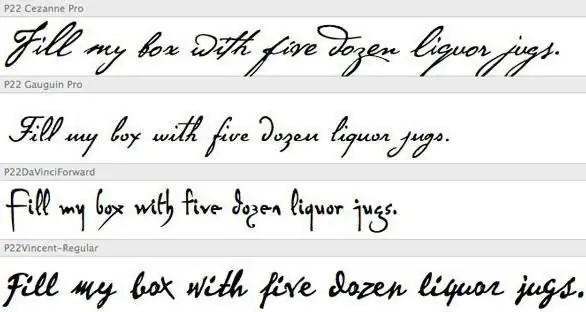 P22 Cezanne Pro
Fill my box with five dozen liquor jugs.
P22 Gauguin Pro
Fill my box with five dozen liquor jugs.
P22DaVinciForward
Fill my box with five dozen liquor jugs.
P22Vincent-Regular
Fill my box with five dozen liquor jugs.